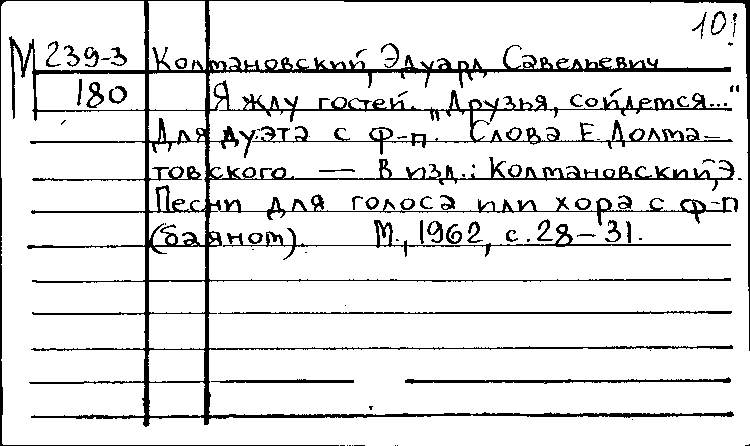 10!
М 239-3 Колмановский, Эдуард Савельевич
180 Я жду гостей. "Друзья, сойдемся..."
Для дуэта с ф-п. Слова Е. Долма-
товского. — В изд.: Колмановский, Э.
Песни для голоса или хора с ф-п
(баяном). М., 1962, с. 28-31.